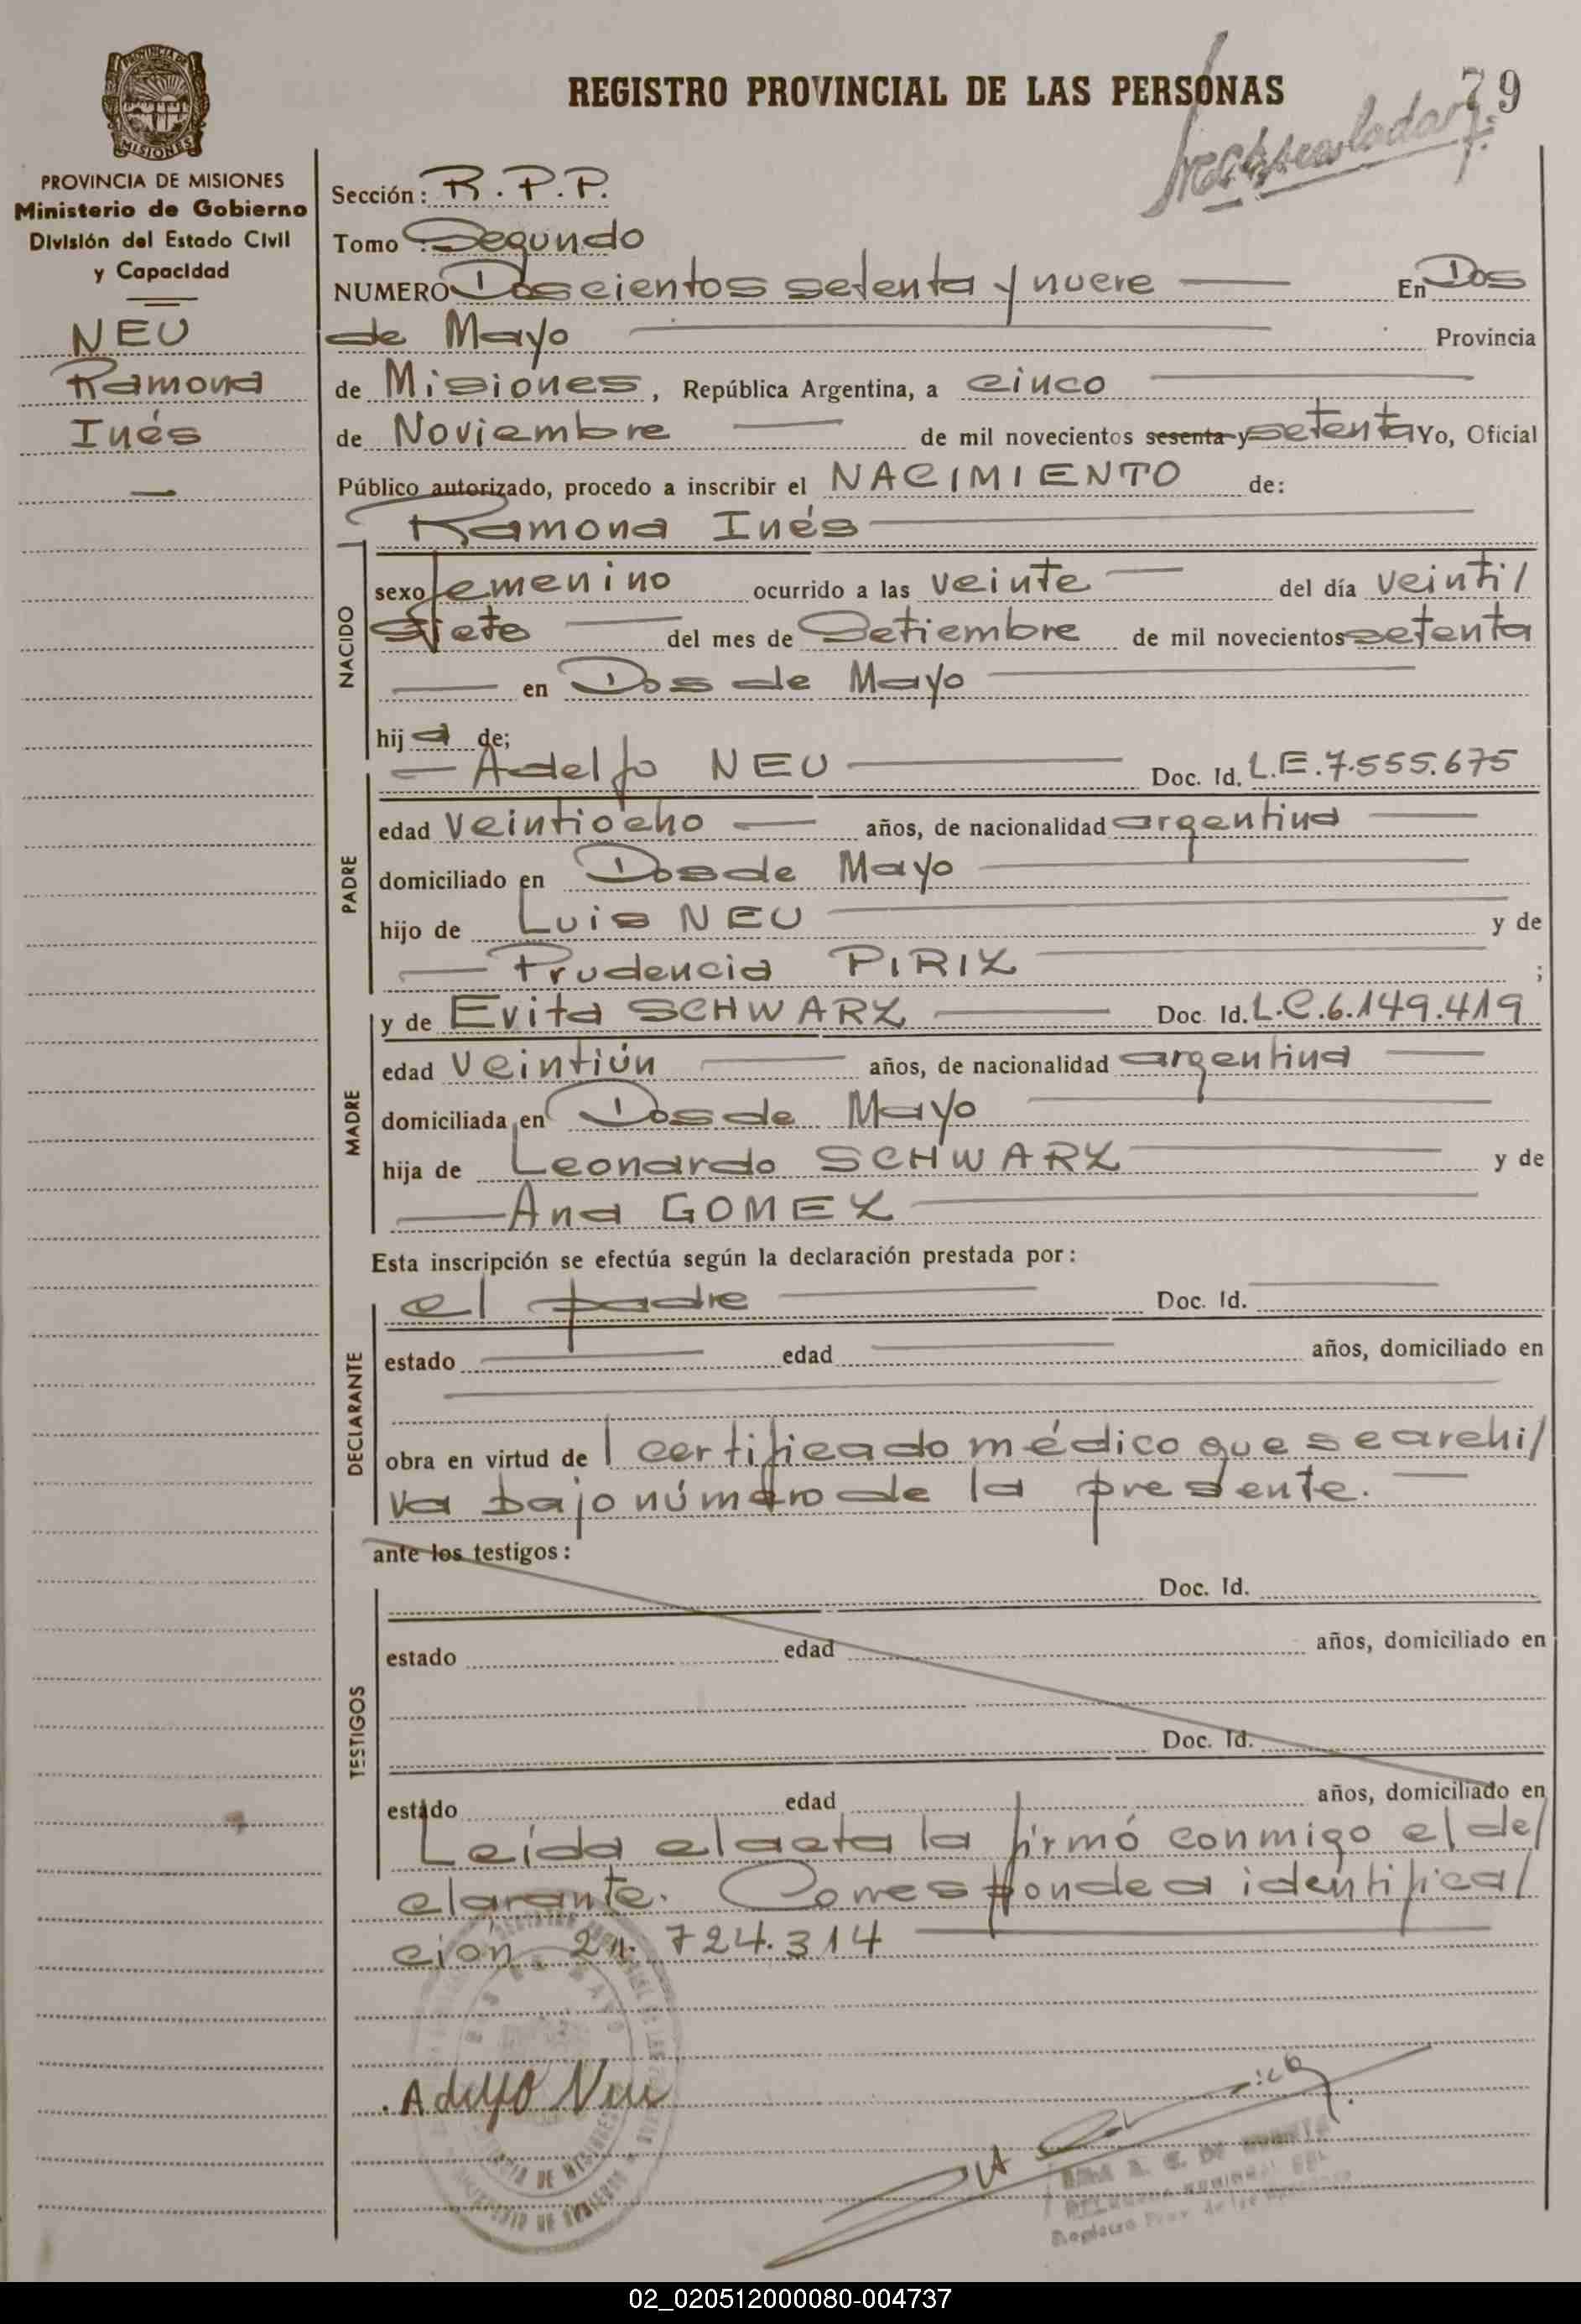 REGISTRO PROVINCIAL DE LAS PERSONAS
79
MISIONES
PROVINCIA DE MISIONES
Ministerio de Gobierno
División del Estado Civil
y Capacidad
NEU
Ramona
Inés
Sección: R.P.P.
Tomo: Segundo
NUMERO Doscientos setenta y nueve En Dos
de Mayo Provincia
de Misiones, República Argentina, a cinco
de Noviembre de mil novecientos sesenta y setenta Yo, Oficial
Público autorizado, procedo a inscribir el NACIMIENTO de:
Ramona Inés
NACIDO
sexo femenino ocurrido a las veinte del día veinti/
siete del mes de Setiembre de mil novecientos setenta
en Dos de Mayo
hij a de;
PADRE
Adelfo NEU Doc. Id. L.E.7.555.675
edad veintiocho años, de nacionalidad argentina
domiciliado en Dos de Mayo
hijo de Luis NEU y de
Prudencia PIRIZ ;
MADRE
y de Evita SCHWARZ Doc. Id. L.C.6.149.419
edad veintiún años, de nacionalidad argentina
domiciliada en Dos de Mayo
hija de Leonardo SCHWARZ y de
Ana GOMEZ
Esta inscripción se efectúa según la declaración prestada por:
DECLARANTE
el padre Doc. Id.
estado edad años, domiciliado en
obra en virtud de l certificado médico que se archi/
va bajo número de la presente.
ante los testigos:
TESTIGOS
Doc. Id.
estado edad años, domiciliado en
Doc. Id.
estado edad años, domiciliado en
Leída el acta la firmó conmigo el de/
clarante. Corresponde a identifica/
ción 21.724.314
Adelfo Neu
02_020512000080-004737